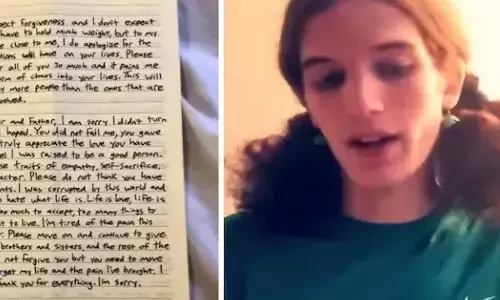 pect forgiveness, and I don't expect
have to hold much weight, but to my
e close to me, I do apologize for the
tions will have on your lives. Please
r all of you so much and it pains me
orm of chaos into your lives. This will
y more people than the ones that are
volved.
er and Father, I am sorry I didn't turn
hoped. You did not fail me, you gave
truly appreciate the love you have
el I was raised to be a good person.
se traits of empathy, self-sacrifice,
acter. Please do not think you have
nts. I was corrupted by this world and
o hate what life is. Life is love, life is
oo much to accept, too many things to
t to live. I'm tired of the pain this
. Please move on and continue to give
brothers and sisters, and the rest of the
not forgive you but you need to move
rget my life and the pain I've brought. I
hank you for everything. I'm sorry.